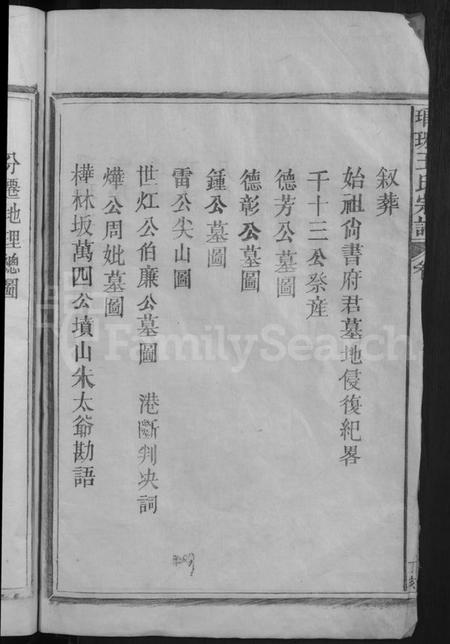 叙葬
始祖尚書府君墓地侵復紀畧
千十三公祭産
德芳公墓圖
德彰公墓圖
鍾公墓圖
雷公尖山圖
世灴公伯廉公墓圖 港斷判决詞
燁公周妣墓圖
樺林坂萬四公墳山朱太爺勘語
分遷地理總圖
王氏宗譜
FamilySearch